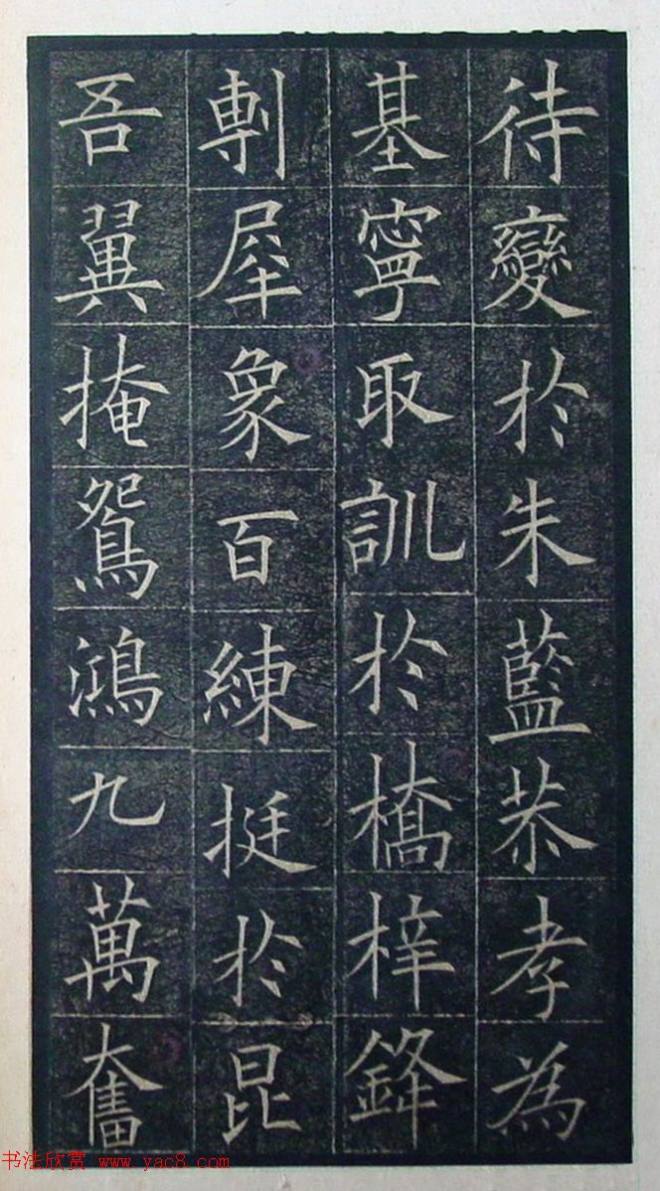 待變於朱藍恭孝為
基寧取訓於橋梓鋒
剸犀象百練挺於昆
吾翼掩鴛鴻九萬奮
书法欣赏 www.yac8.com